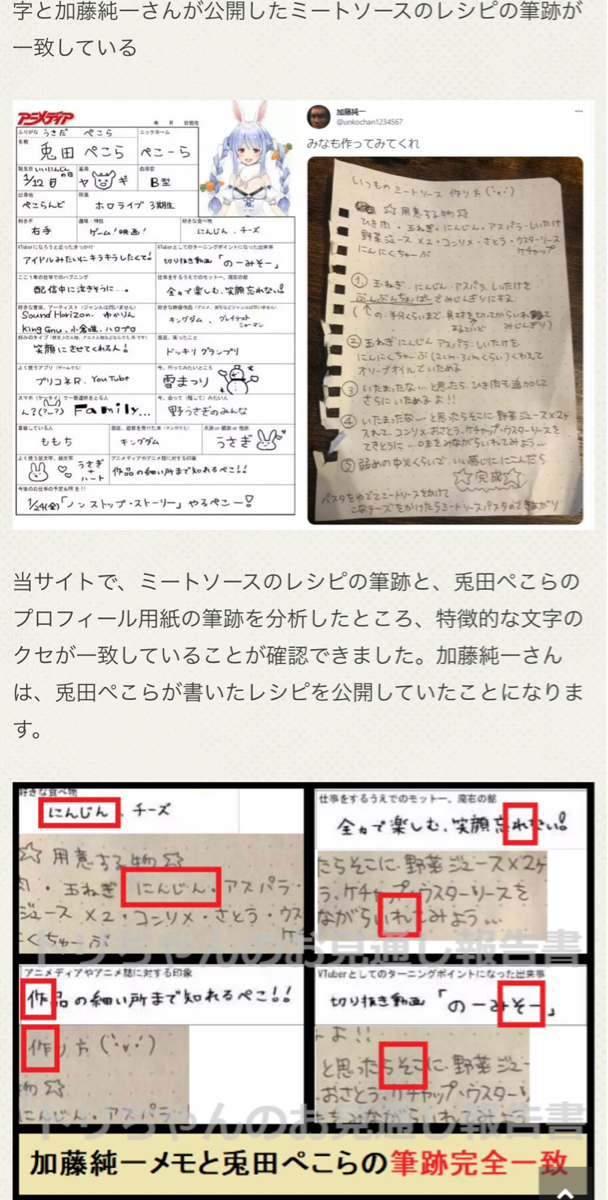 字と加藤純一さんが公開したミートソースのレシピの筆跡が
一致している
アニメディア
年 月 日現在
ふりがな うさだ ぺこら
ニックネーム
名前 兎田 ぺこら
ぺこーら
1/12
ヤギ
B型
出身地 ぺこらんど
所属 ホロライブ 3期生
利き手 右手
趣味・特技 ゲーム!映画!
好きな食べ物 にんじん、チーズ
VTuberになろうと思ったきっかけ
アイドルみたいにキラキラしたくて!
VTuberとしてのターニングポイントになった出来事
切り抜き動画「のーみそー」
ここ1年の仕事でのハプニング
配信中に泣きそうに…。
仕事をするうえでのモットー、座右の銘
全力で楽しむ、笑顔忘れない!
Sound Horizon、ゆかりん
King Gnu、小倉唯、ハロプロ
キングダム、グレイテストショーマン
笑顔にさせてくれる人!
最近、笑ったこと
ドッキリグランプリ
プリコネR、YouTube
今、行ってみたいところ
雪まつり
Family...
野うさぎのみんな
ももち
キングダム
うさぎ
うさぎ+ハート
アニメディアやアニメ誌に対する印象
作品の細い所まで知れるぺこ!!
1/24(金)「ノンストップ・ストーリー」やるぺこー!
加藤純一
@unkochan1234567
みなも作ってみてくれ
いつものミートソース 作り方
☆用意する物☆
ひき肉・玉ねぎ・にんじん・アスパラ・しいたけ
野菜ジュース×2・コンソメ・さとう・ウスターソース
にんにくちゅーぶ ケチャップ
① 玉ねぎ・にんじん、アスパラ、しいたけを
ぶんぶんちょっぱーでみじんぎりにする
② 玉ねぎ にんじん アスパラ しいたけを
にんにくちゅーぶ(2cm・3cmくらい)くわえて
オリーブオイルでいためる
③ いたまったな…と思ったら、ひき肉も追加して
さらにいためるよ!!
④ いたまったな…と思ったらそこに野菜ジュース×2ヶ
入れて、コンソメ、おさとう、ケチャップ・ウスターソースを
てきとうに…の味をみながらいれてみよう…
⑤ 弱めの中火くらいで、いい感じににこんだら
☆完成☆
パスタをゆでてミートソースをかけて
こなチーズをかけたらミートソースパスタのできあがり
当サイトで、ミートソースのレシピの筆跡と、兎田ぺこらの
プロフィール用紙の筆跡を分析したところ、特徴的な文字の
クセが一致していることが確認できました。加藤純一さん
は、兎田ぺこらが書いたレシピを公開していたことになりま
す。
好きな食べ物
にんじん、チーズ
☆用意する物☆
肉・玉ねぎ にんじん・アスパラ・
ジュース ×2・コンソメ・さとう・ウス
にくちゅーぶ
仕事をするうえでのモットー、座右の銘
全力で楽しむ、笑顔忘れない!
たらそこに、野菜ジュース×2ヶ
う、ケチャップ・ウスターソースを
ながらいれてみよう…
アニメディアやアニメ誌に対する印象
作品の細い所まで知れるぺこ!!
作り方
物☆
にんじん・アスパラ
VTuberとしてのターニングポイントになった出来事
切り抜き動画「のーみそー」
よ!!
と思ったらそこに、野菜ジュー
おさとう、ケチャップ・ウスター
ちゃんのお見通し報告書
ちゃんのお見通し報告書
加藤純一メモと兎田ぺこらの筆跡完全一致